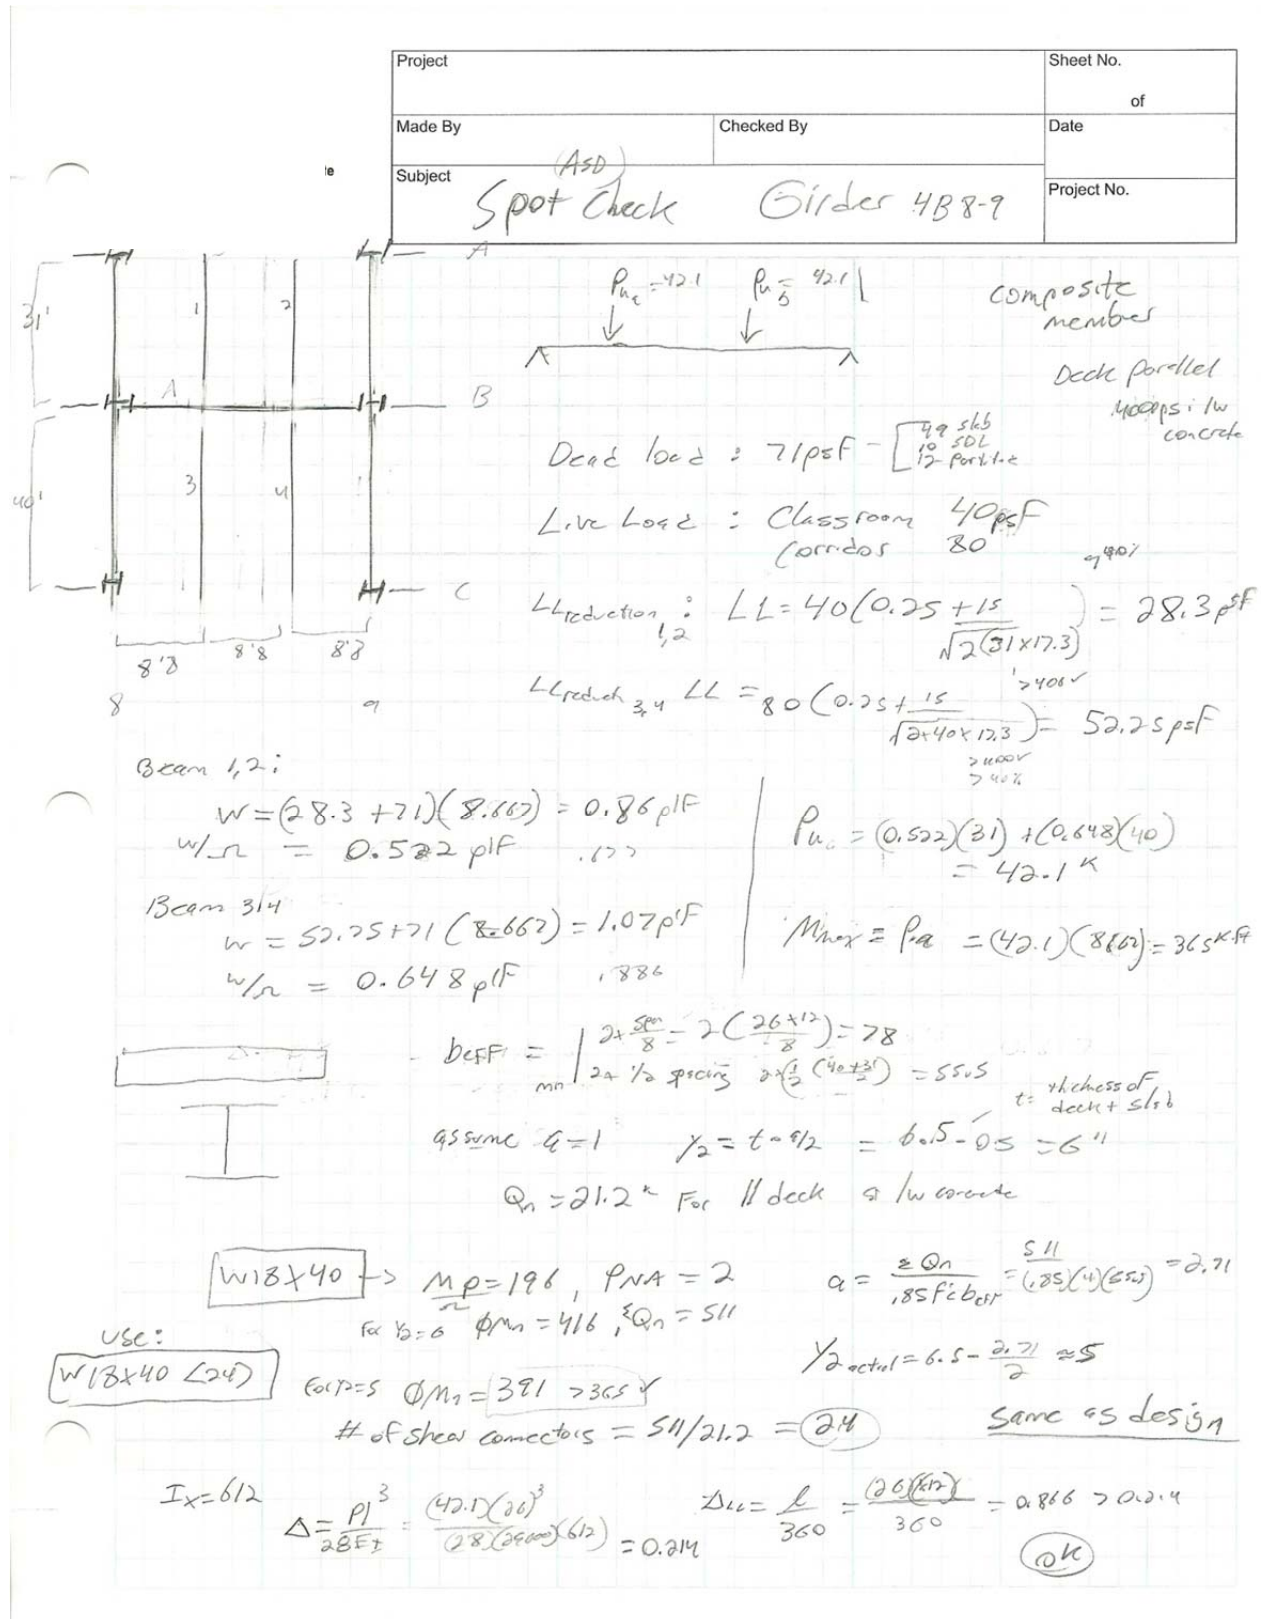 Project
Sheet No.
of
Made By
Checked By
Date
Subject
(ASD)
Spot Check Girder 4B8-9
Project No.
A
31'
1
2
A
B
40'
3
4
C
8'8 8'8 8'8
8 9
Pu = 42.1 Pu = 42.1
composite
member
Deck Parallel
4000psi lw
concrete
Dead load : 71psf - 49 slab
10 SDL
12
Live Load : Classroom 40psf
Corridos 80
LLreduction 1,2 : LL = 40(0.25 + 15 / √2(31×17.3)) = 28.3psf
>400✓
LLreduch 3,4 LL = 80(0.25 + 15 / √2×40×17.3) = 52.25psf
>400✓
>40%
Beam 1,2:
w = (28.3 + 71)(8.667) = 0.86plf
w/Ω = 0.522 plf
Beam 3,4
w = 52.25+71 (8.667) = 1.07plf
w/Ω = 0.648 plf .886
Pu = (0.522)(31) + (0.648)(40)
= 42.1 K
Mmax = P.a = (42.1)(8.667) = 365 K-ft
beff = min 2× span/8 = 2(26×12/8) = 78
2× 1/2 spacing 2×1/2(40+31/2) = 55.5
t = thickness of
deck + slab
assume a=1 Y2 = t-a/2 = 6.5-0.5 = 6"
Qn = 21.2k For // deck lw concrete
W18X40 → Mp/Ω = 196, PNA = 2
For Y2=6 ØMn = 416, ΣQn = 511
a = ΣQn / .85f'c beff = 511 / (.85)(4)(55.5) = 2.71
Y2 actual = 6.5 - 2.71/2 ≈ 5
Use:
W18X40 <24>
For Y2=5 ØMn = 391 >365 ✓
# of shear connectors = 511/21.2 = 24
Same as design
Ix=612
Δ = Pl³/28EI = (42.1)(26)³/(28)(29000)(612) = 0.214
ΔLL = l/360 = (26)(12)/360 = 0.866 > 0.214
OK